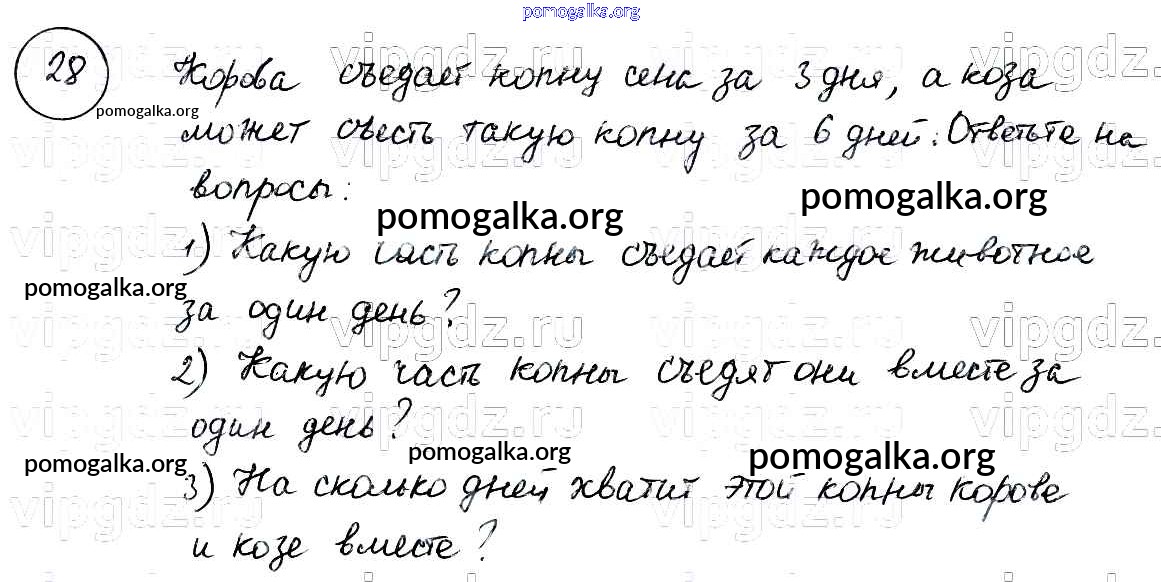 pomogalka.org
28 Корова съедает копну сена за 3 дня, а коза
pomogalka.org
может съесть такую копну за 6 дней. Ответьте на
вопросы:
pomogalka.org pomogalka.org
1) Какую часть копны съедает каждое животное
pomogalka.org
за один день?
vipgdz.ru vipgdz.ru vipgdz.ru vipgdz.ru
2) Какую часть копны съедят они вместе за
один день?
pomogalka.org pomogalka.org pomogalka.org
3) На сколько дней хватит этой копны корове
и козе вместе?